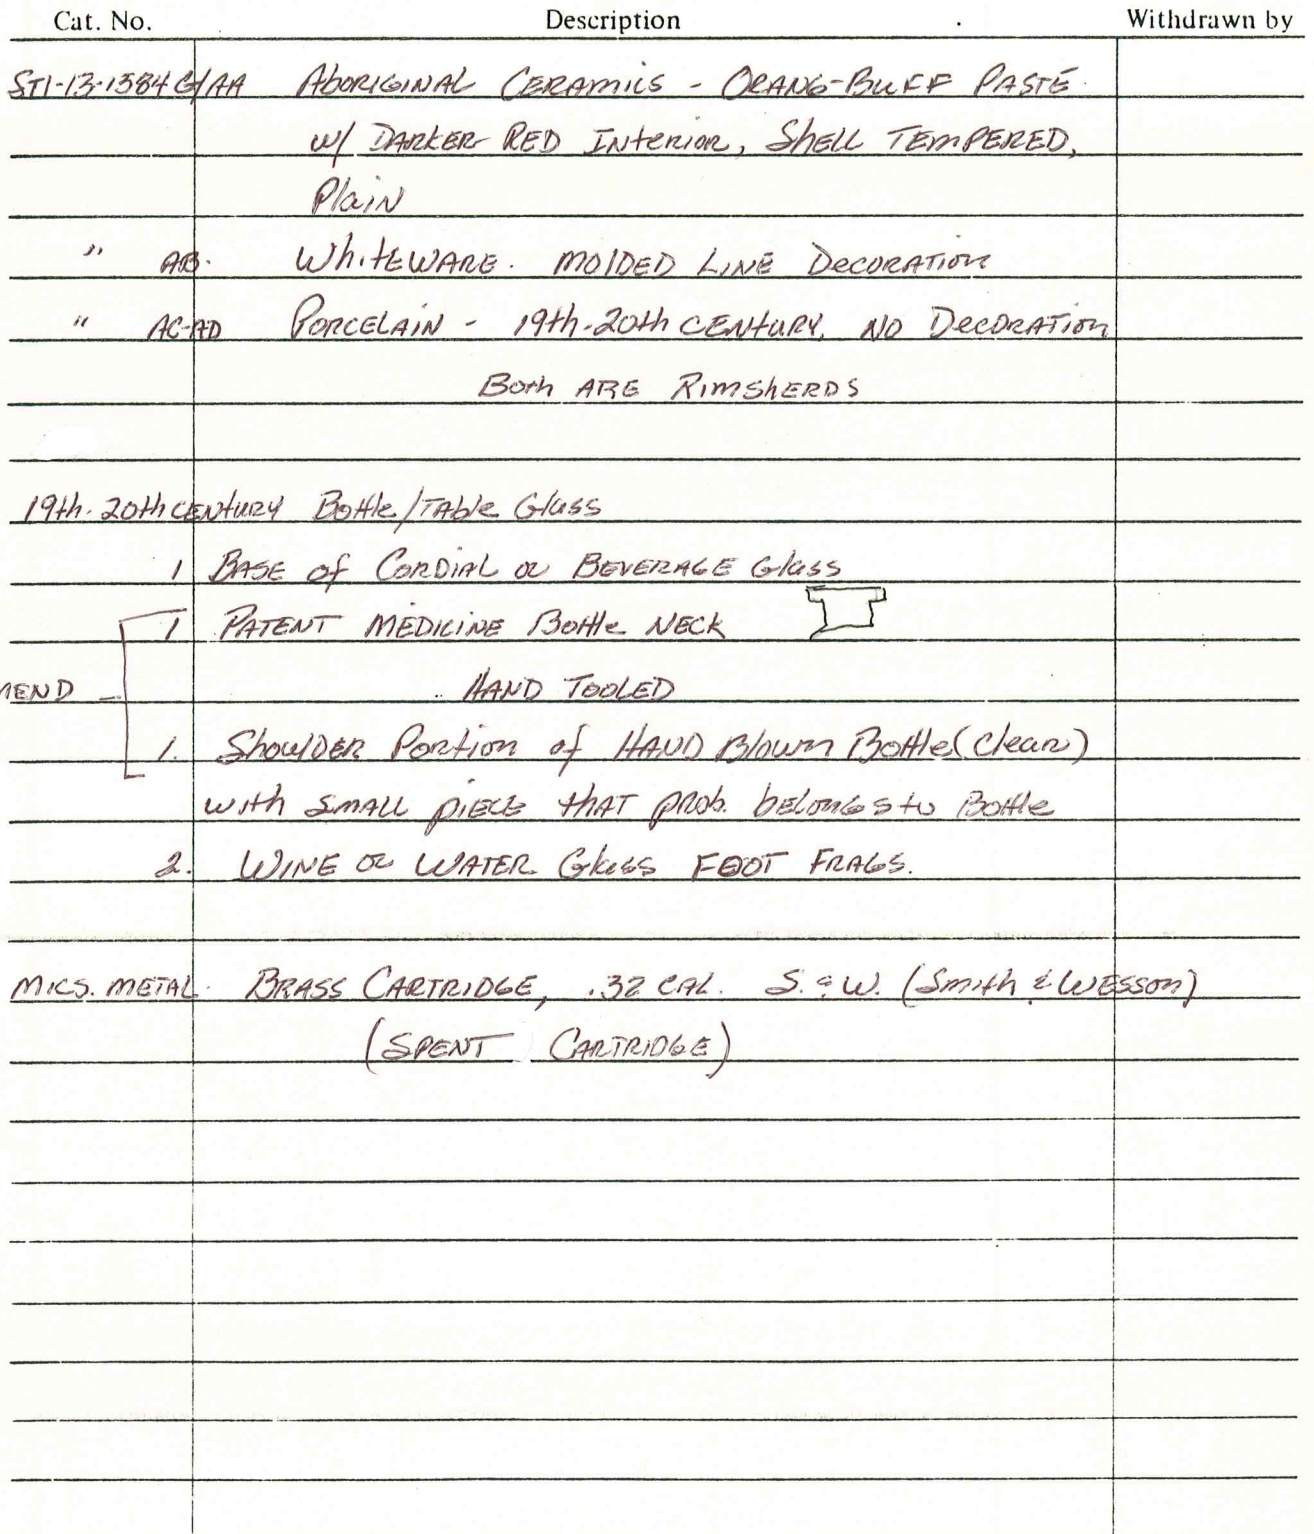 Cat. No. Description Withdrawn by
ST1-13-1384 G/AA Aboriginal Ceramics - Orang-Buff Paste
w/ Darker Red Interior, Shell Tempered,
Plain
" AB. Whiteware. Molded Line Decoration
" AC-AD Porcelain - 19th-20th Century, No Decoration
Both are Rimsherds
19th-20th Century Bottle/Table Glass
1 Base of Cordial or Beverage Glass
1 Patent Medicine Bottle Neck
MEND - Hand Tooled
1. Shoulder Portion of Hand Blown Bottle (Clear)
with small piece that prob. belongs to Bottle
2. Wine or Water Glass Foot Frags.
Mics. Metal Brass Cartridge, .32 Cal. S. & W. (Smith & Wesson)
(Spent Cartridge)